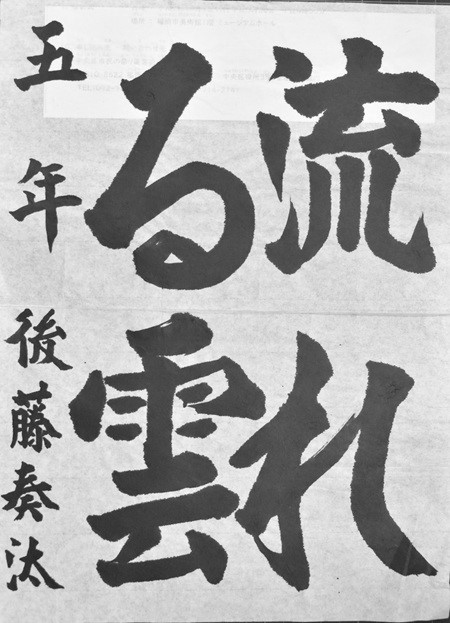 流れ
る雲
五年 後藤奏汰